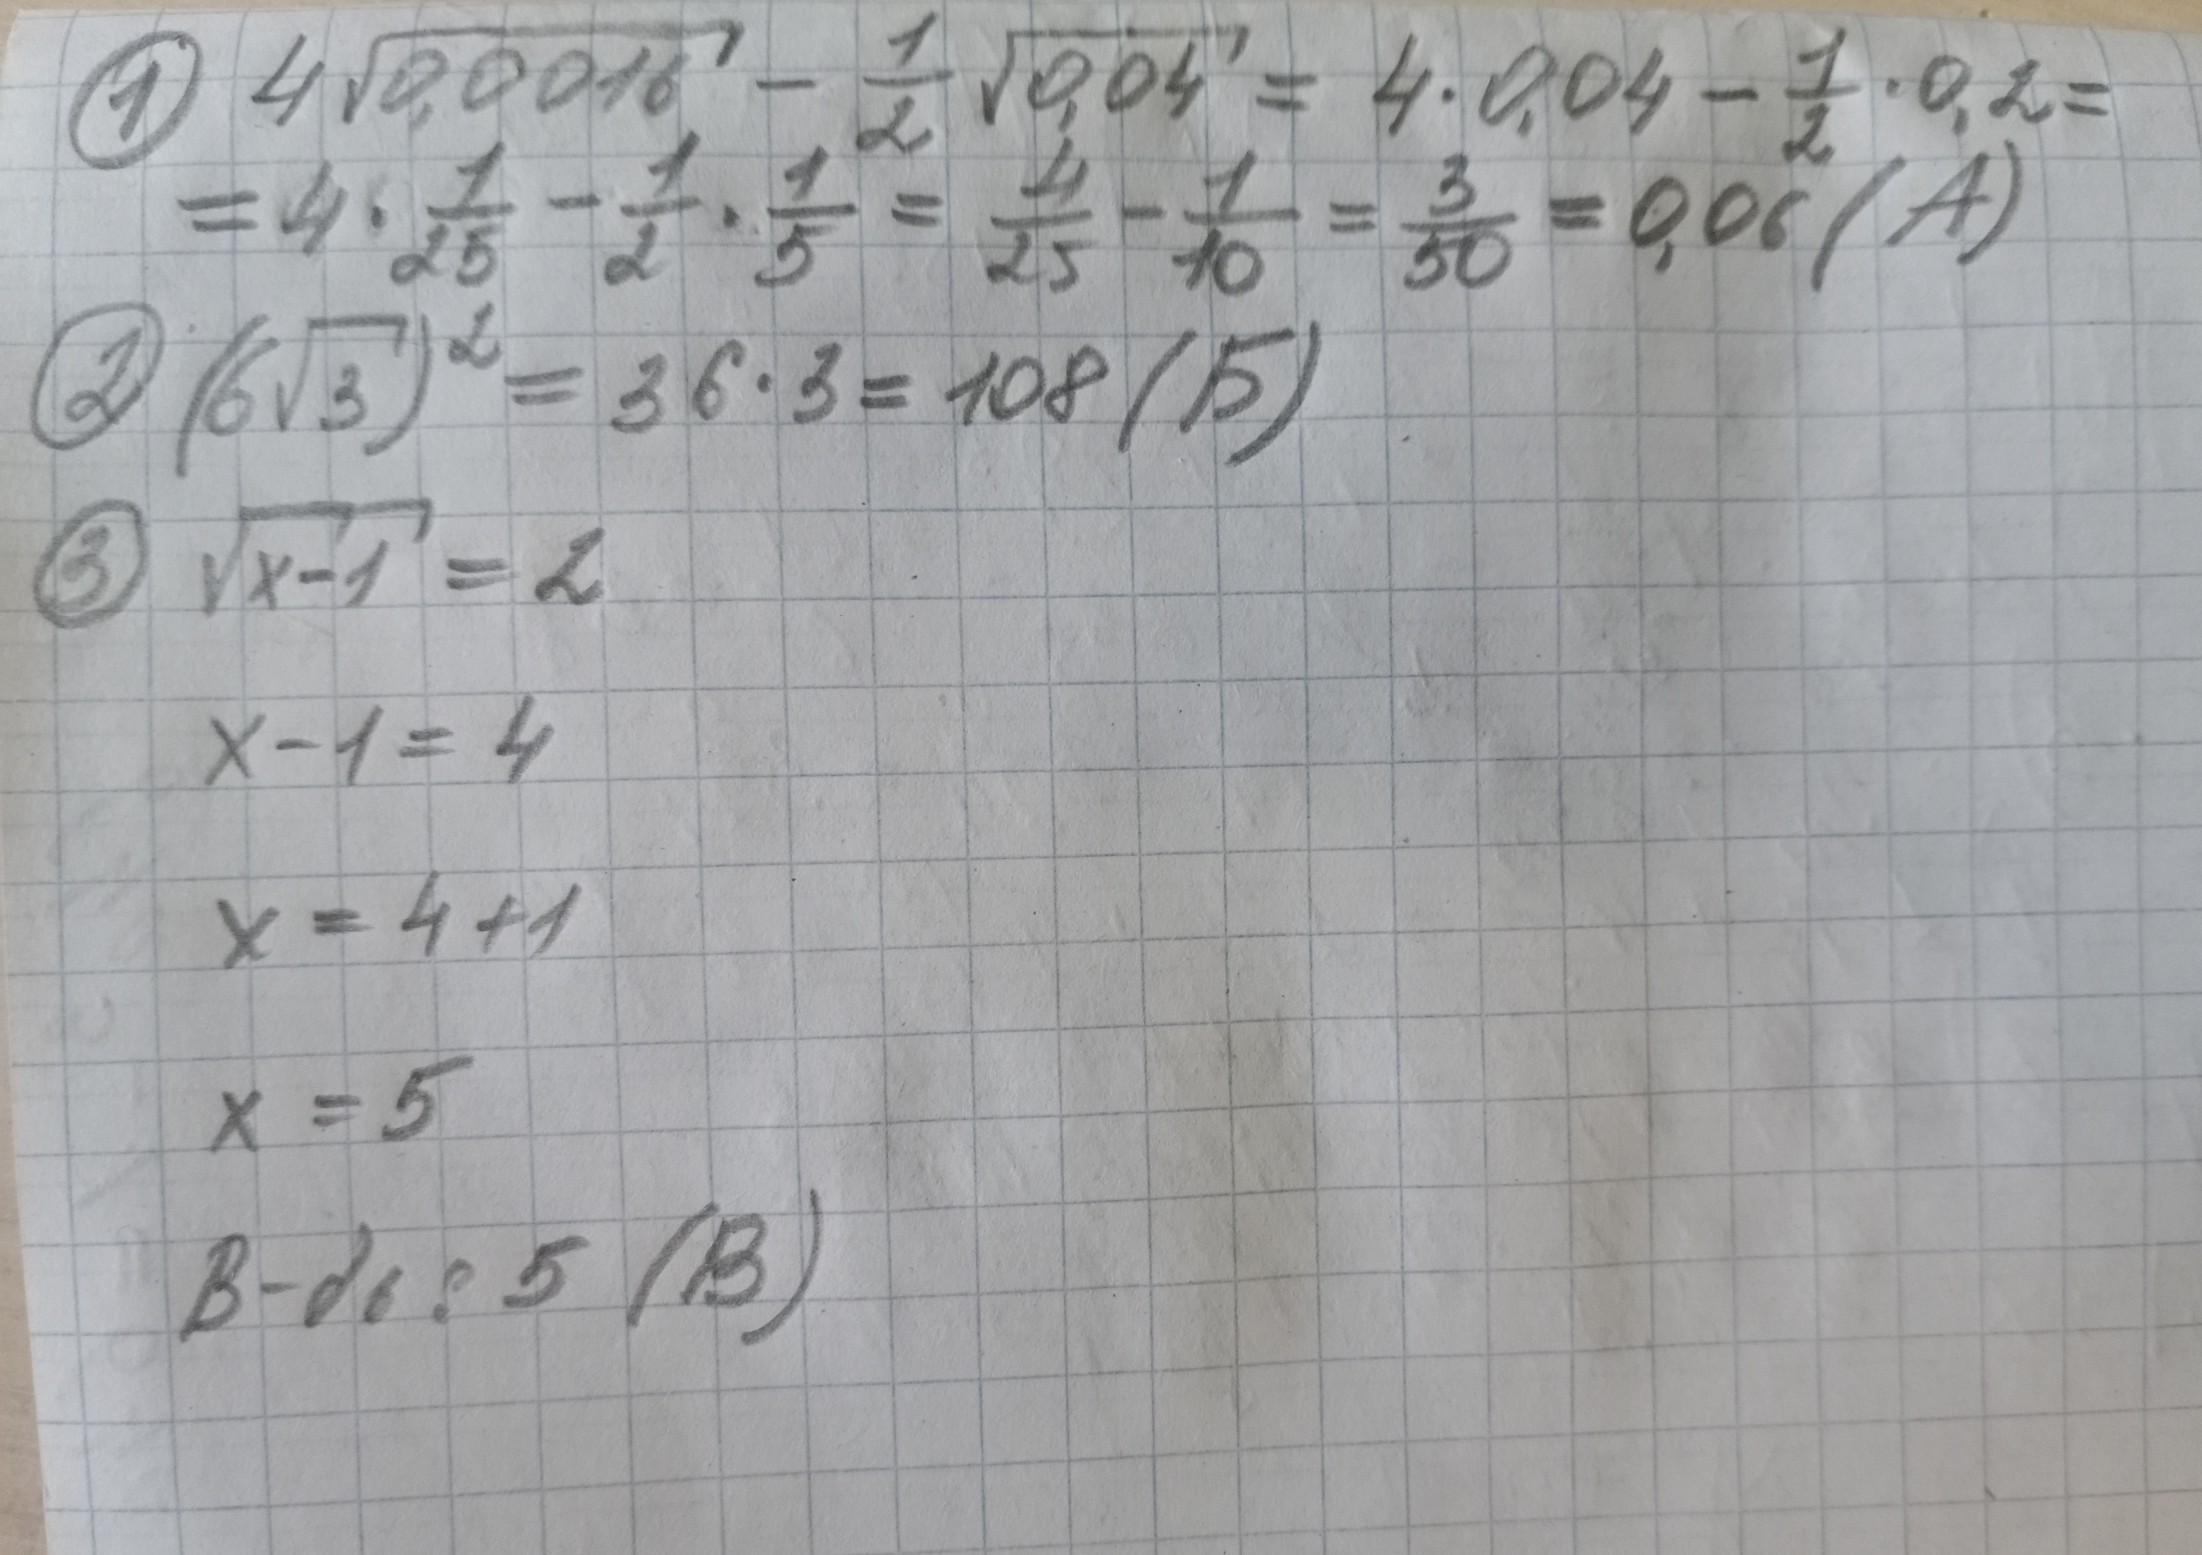 ① 4√0,0016 - 1/2 √0,04 = 4·0,04 - 1/2 · 0,2 =
= 4 · 1/25 - 1/2 · 1/5 = 4/25 - 1/10 = 3/50 = 0,06 (А)
② (6√3)² = 36·3 = 108 (Б)
③ √x-1 = 2
x-1 = 4
x = 4+1
x = 5
В-дь: 5 (В)